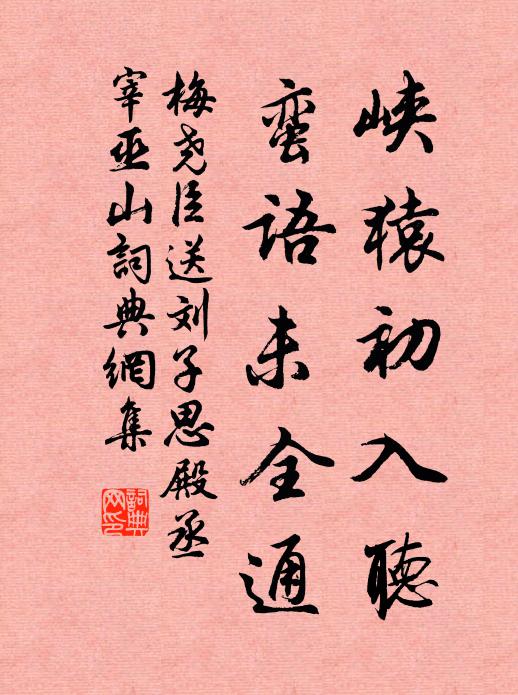 峡猿初入聴
蛮语未全通
梅尧臣送刘子思殿丞
宰巫山詞典網集
詞典
网印